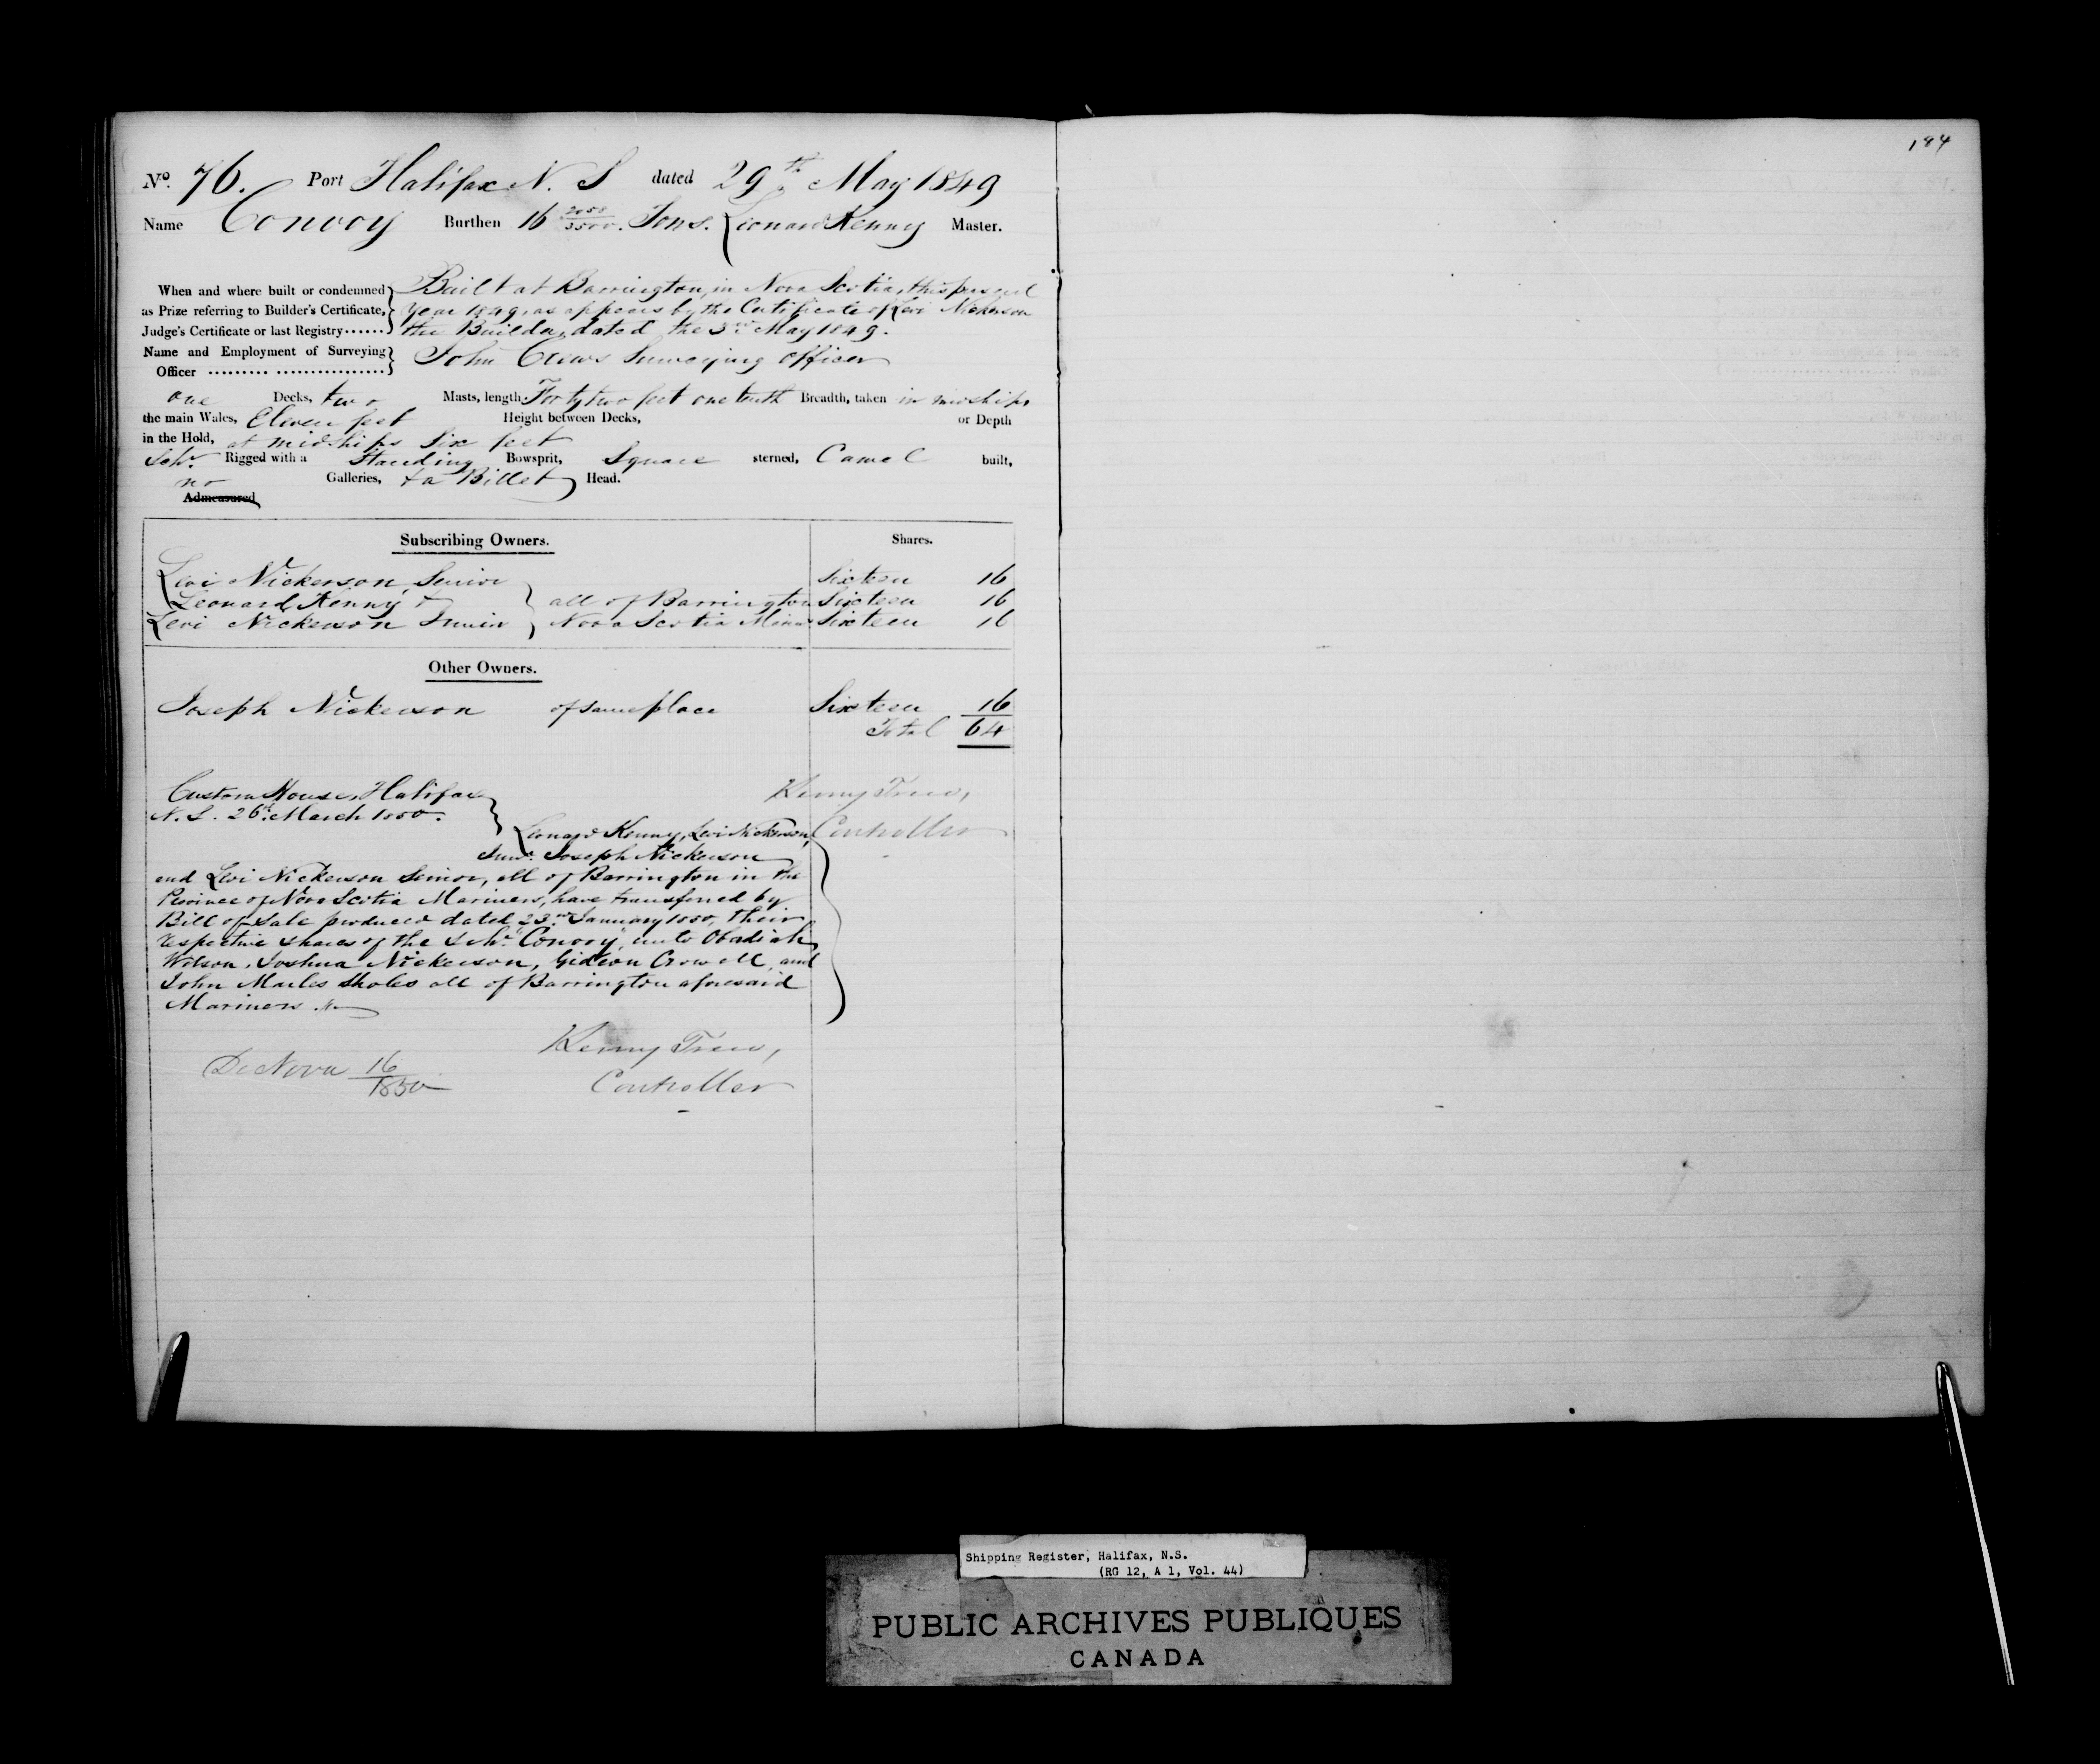 No. 76. Port Halifax N. S dated 29th May 1849
Name Convoy Burthen 16 2058/3500. Tons. Leonard Kenny Master.
When and where built or condemned Built at Barrington, in Nova Scotia, this present
as Prize referring to Builder's Certificate, Year 1849, as appears by the Certificate of Levi Nickerson
Judge's Certificate or last Registry...... the Builder, dated the 3rd May 1849.
Name and Employment of Surveying John Crews Surveying Officer
Officer ......... ................
one Decks, two Masts, length Forty two feet one tenth Breadth, taken in midships
the main Wales, Eleven feet Height between Decks, or Depth
in the Hold, at midships Six feet
Schr. Rigged with a Standing Bowsprit, Square sterned, Carvel built,
no Galleries, & a Billet Head.
Admeasured
Subscribing Owners. Shares.
Levi Nickerson, Senior Sixteen 16
Leonard Kenny & all of Barrington Sixteen 16
Levi Nickerson Junior Nova Scotia Sixteen 16
Other Owners.
Joseph Nickerson of same place Sixteen 16
Total 64
Custom House, Halifax Kenny Trew,
N. S. 26th March 1850.
Leonard Kenny, Levi Nickerson, Controller
Junr. Joseph Nickerson
and Levi Nickerson Senior, all of Barrington in the
Province of Nova Scotia Mariners, have transferred by
Bill of Sale produced dated 23rd January 1850, their
respective shares of the Schr. "Convoy", unto Obadiah
Wilson, Joshua Nickerson, Gideon Crowell, and
John Sholes all of Barrington aforesaid
Mariners
Kenny Trew,
De Novo 16/1850
Controller
184
Shipping Register, Halifax, N.S.
(RG 12, A 1, Vol. 44)
PUBLIC ARCHIVES PUBLIQUES
CANADA